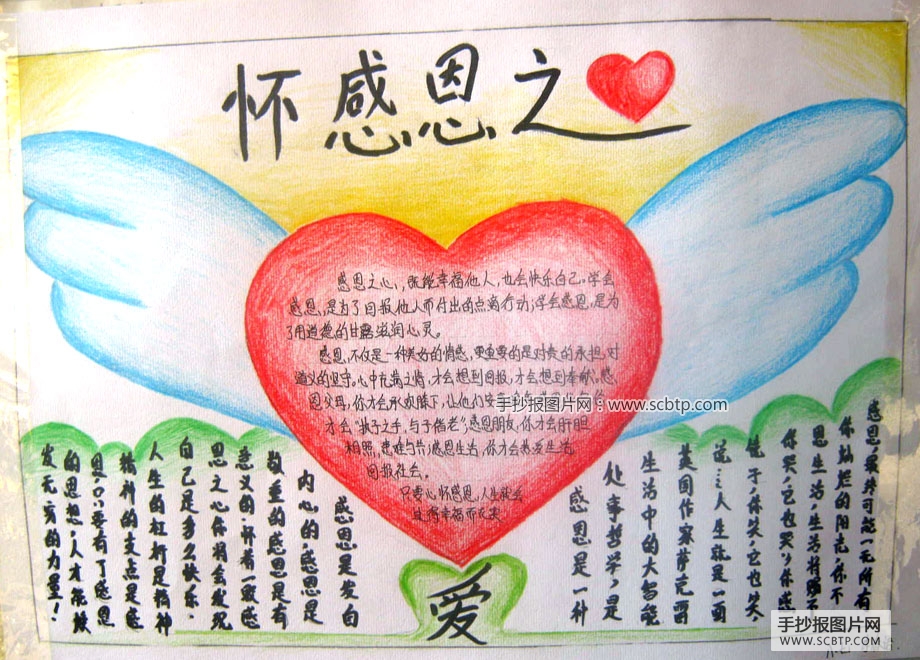 怀感恩之
感恩之心，既能幸福他人，也会快乐自己。学会
感恩，是为了回报他人而付出的点滴行动；学会感恩，是为
了用道德的甘露滋润心灵。
感恩，不仅是一种美好的情感，更重要的是对责的承担，对
道义的坚守。心中充满之情，才会想到回报，才会想到奉献。感
恩父母，你才会承欢膝下，让他人
才会"执子之手，与子偕老"；感恩朋友，你才会肝胆
相照，患难与共；感恩生活，你才会热爱生活，
回报社会。
只要心怀感恩，人生就会
过得幸福而充实
手抄报图片网：www.scbtp.com
感恩是一种
处事哲学，是
生活中的大智能
英国作家萨克雷
说：人生就是一面
镜子，你笑，它也笑，
你哭，它也哭。你感
恩生活，生活将赐予
你灿烂的阳光，你不
感恩，最终可能一无所有
感恩是发自
内心的，感恩是
敬重的感恩是有
意义的，一颗感
恩之心你将会发现
自己是多么快乐。
人生的杠杆是精神
精神的支点是感
恩，只要有了感恩
的思想，人才能焕
发无穷的力量！
爱
手抄报图片网
WWW.SCBTP.COM